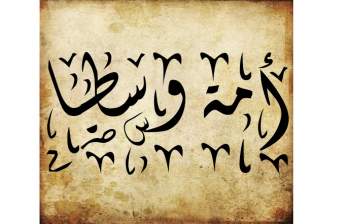 أمة وسطا